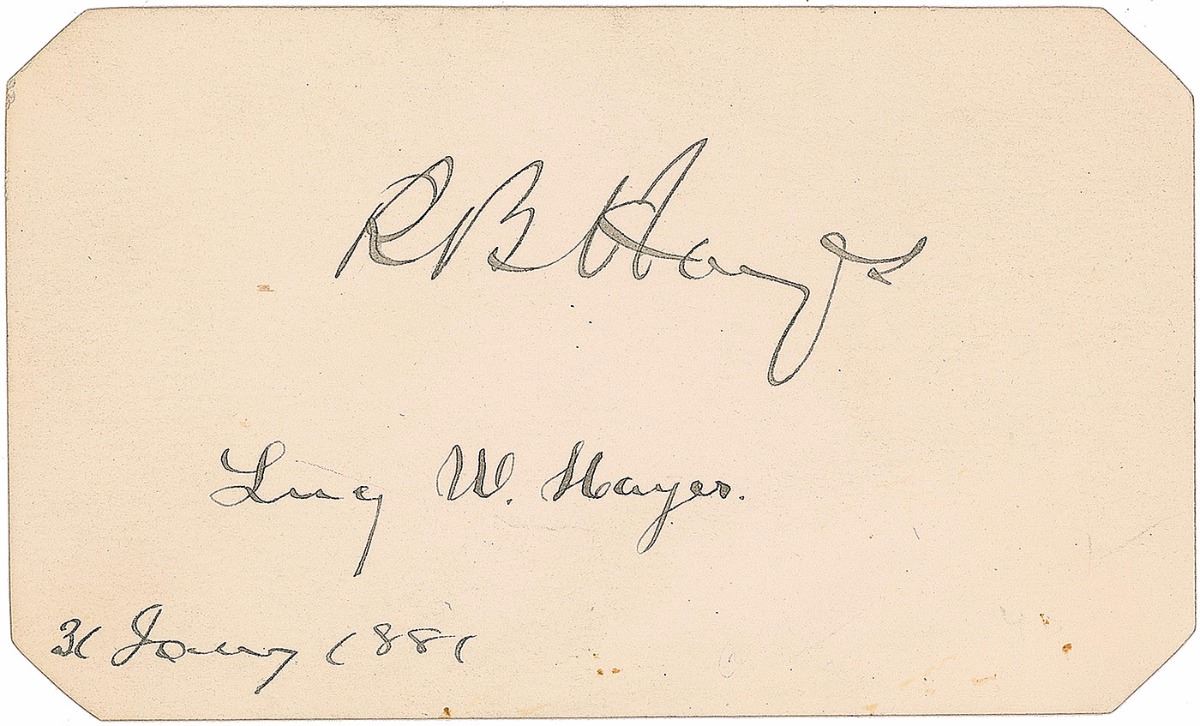 R B Hayes
Lucy W. Hayes.
31 Jany 1881